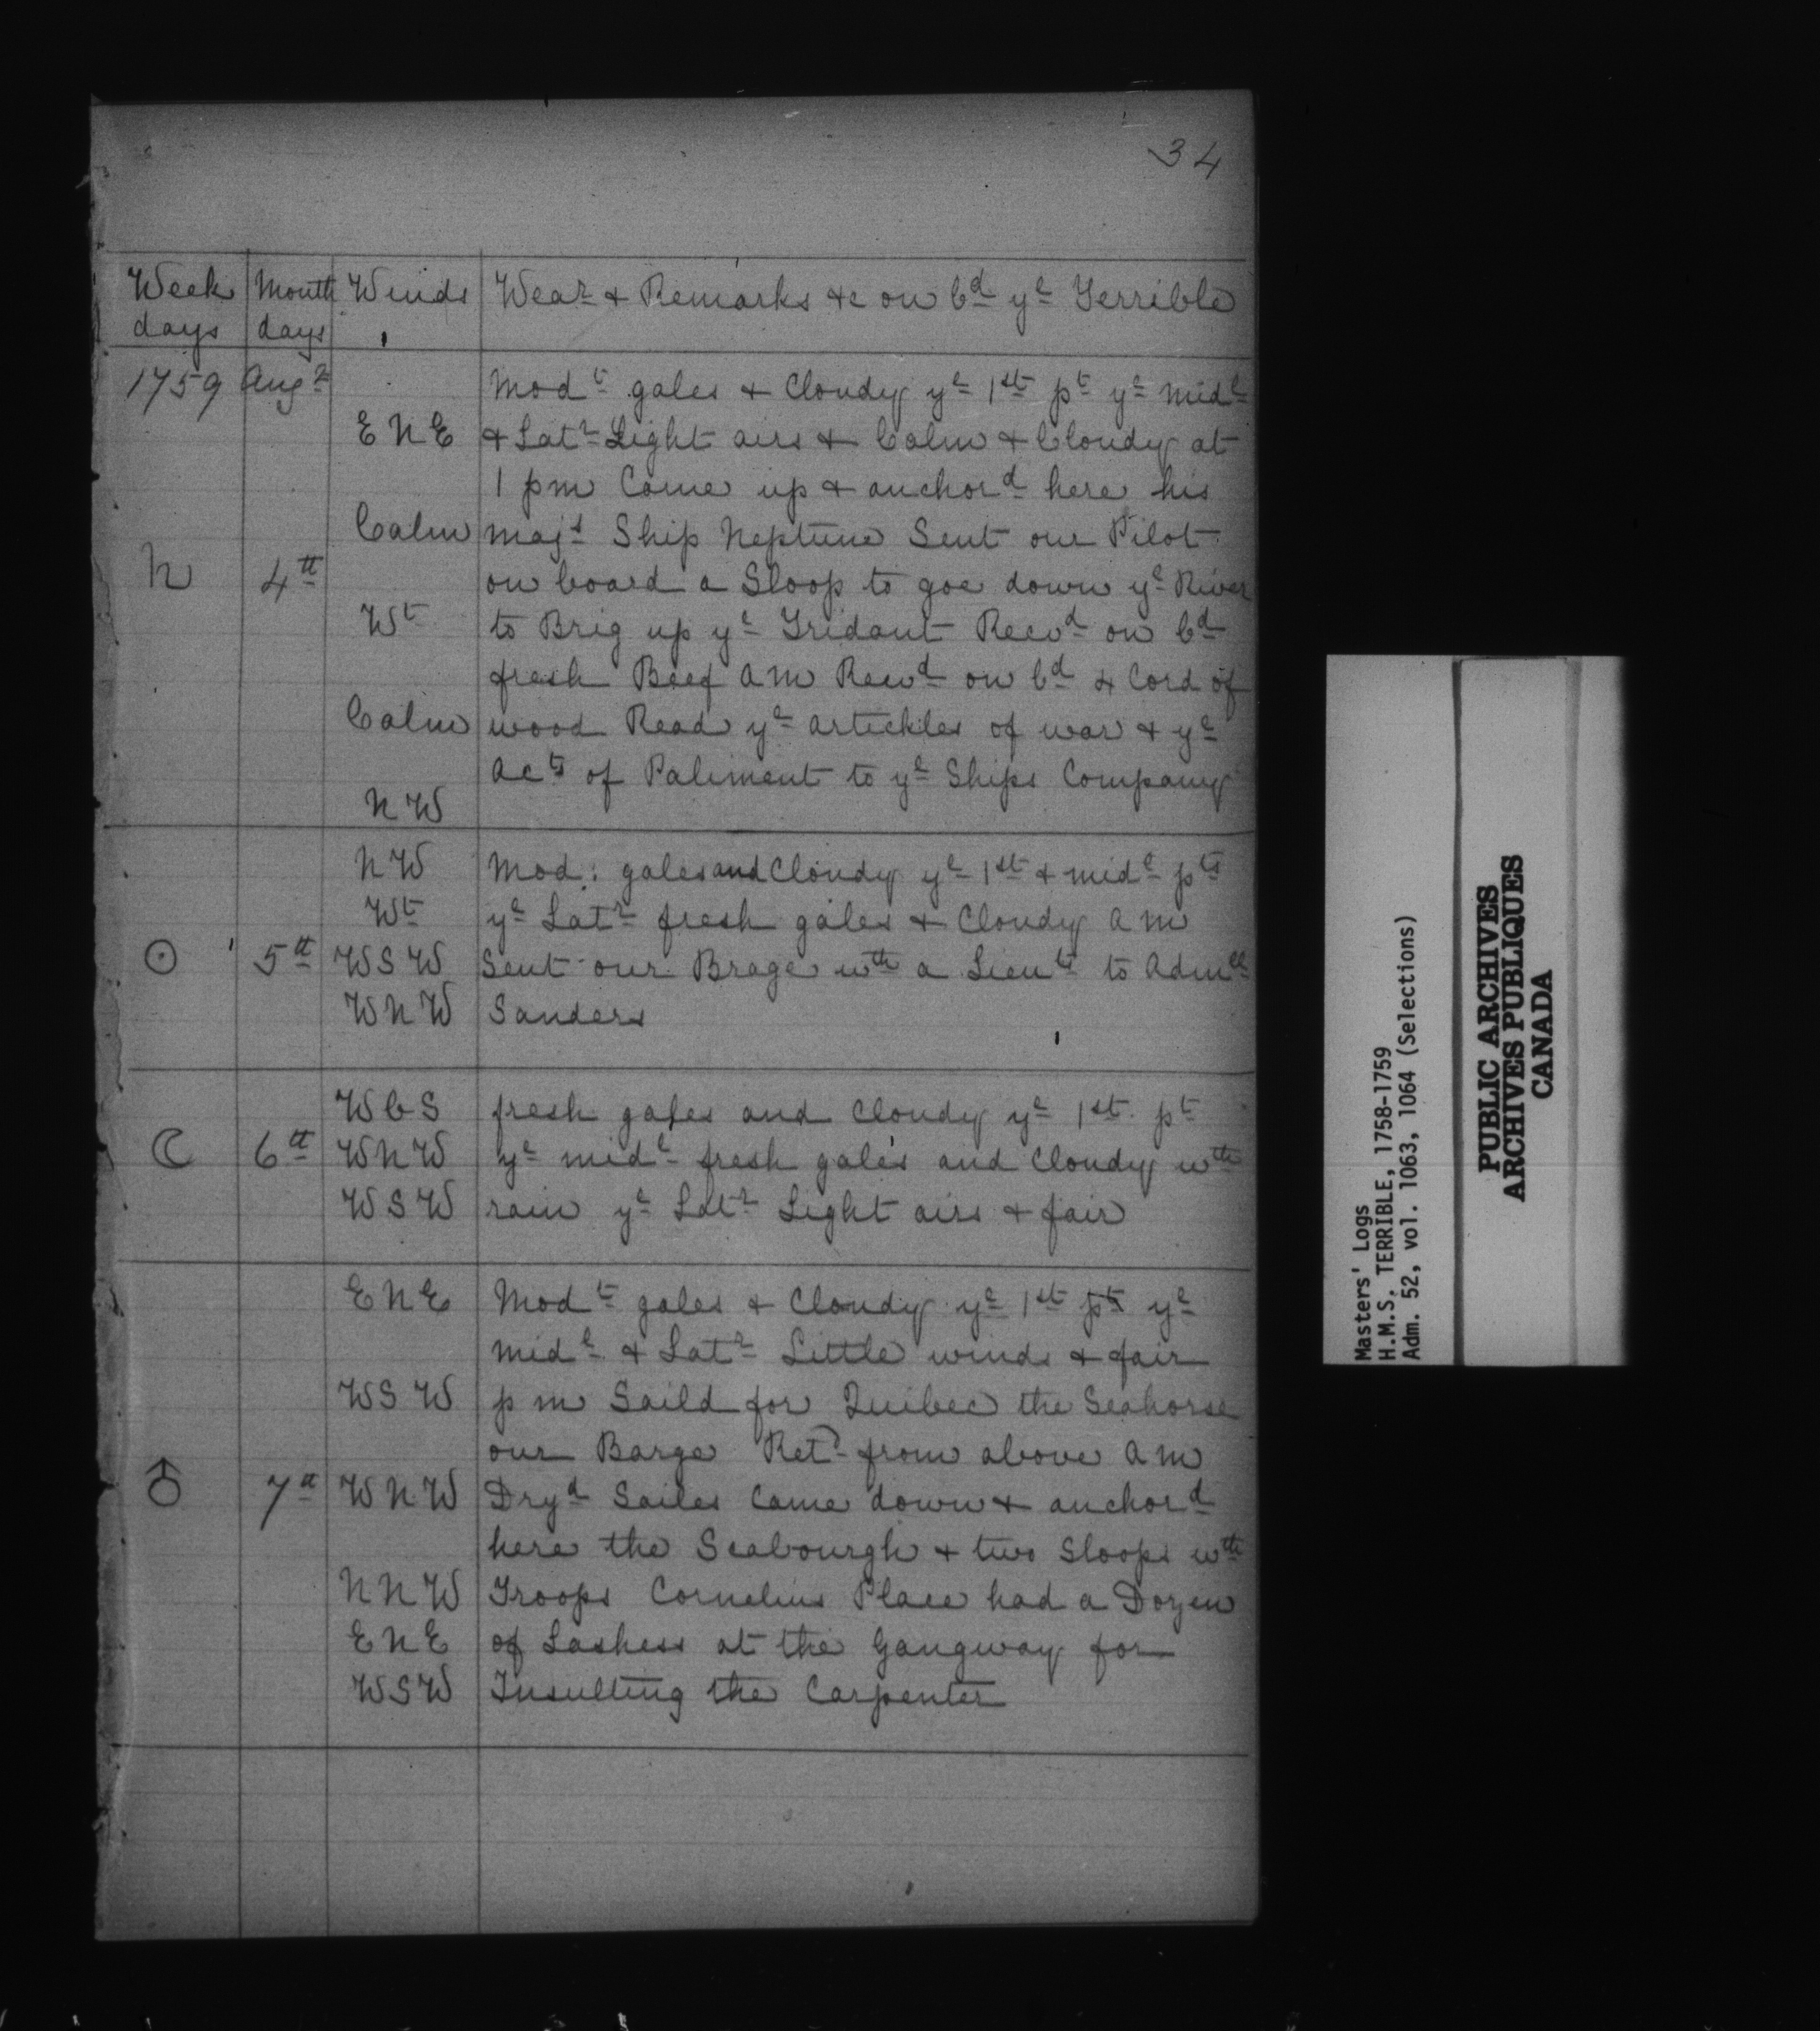 34
Week days | Month days | Winds | Wear & Remarks &c on bd ye Terrible
1759 Augt
Modt gales & Cloudy ye 1st pt ye midle
E N E & Latr Light airs & Calm & Cloudy at
1 pm Came up & anchord here his
Calm majs Ship Neptune Sent our Pilot
♄ 4th on board a Sloop to goe down ye River
Wt to Brig up ye Tridant Recvd on bd
fresh Beef A M Recvd on bd 4 Cord of
Calm wood Read ye artickles of war & ye
Acts of Paliment to ye Ships Company
N W
N W Mod: gales and Cloudy ye 1st & midle pts
Wt ye Latr fresh gales & Cloudy A M
☉ 5th W S W Sent our Brage wth a Lieut to Admll
W N W Sanders
W b S fresh gales and Cloudy ye 1st pt
☾ 6th W N W ye midle fresh gales and Cloudy wth
W S W rain ye Latr Light airs & fair
E N E Modt gales & Cloudy ye 1st pt ye
midle & Latr Little winds & fair
W S W p m Saild for Quibec the Seahorse
our Barge Retd from above A M
♂ 7th W N W Dryd Sailes Came down & anchord
here the Scabourgh & two Sloops wth
N N W Troops Cornelius Place had a Dozen
E N E of Lashess at the Gangway for
W S W Insulting the Carpenter
Masters' Logs
H.M.S. TERRIBLE, 1758-1759
Adm. 52, vol. 1063, 1064 (Selections)
PUBLIC ARCHIVES
ARCHIVES PUBLIQUES
CANADA